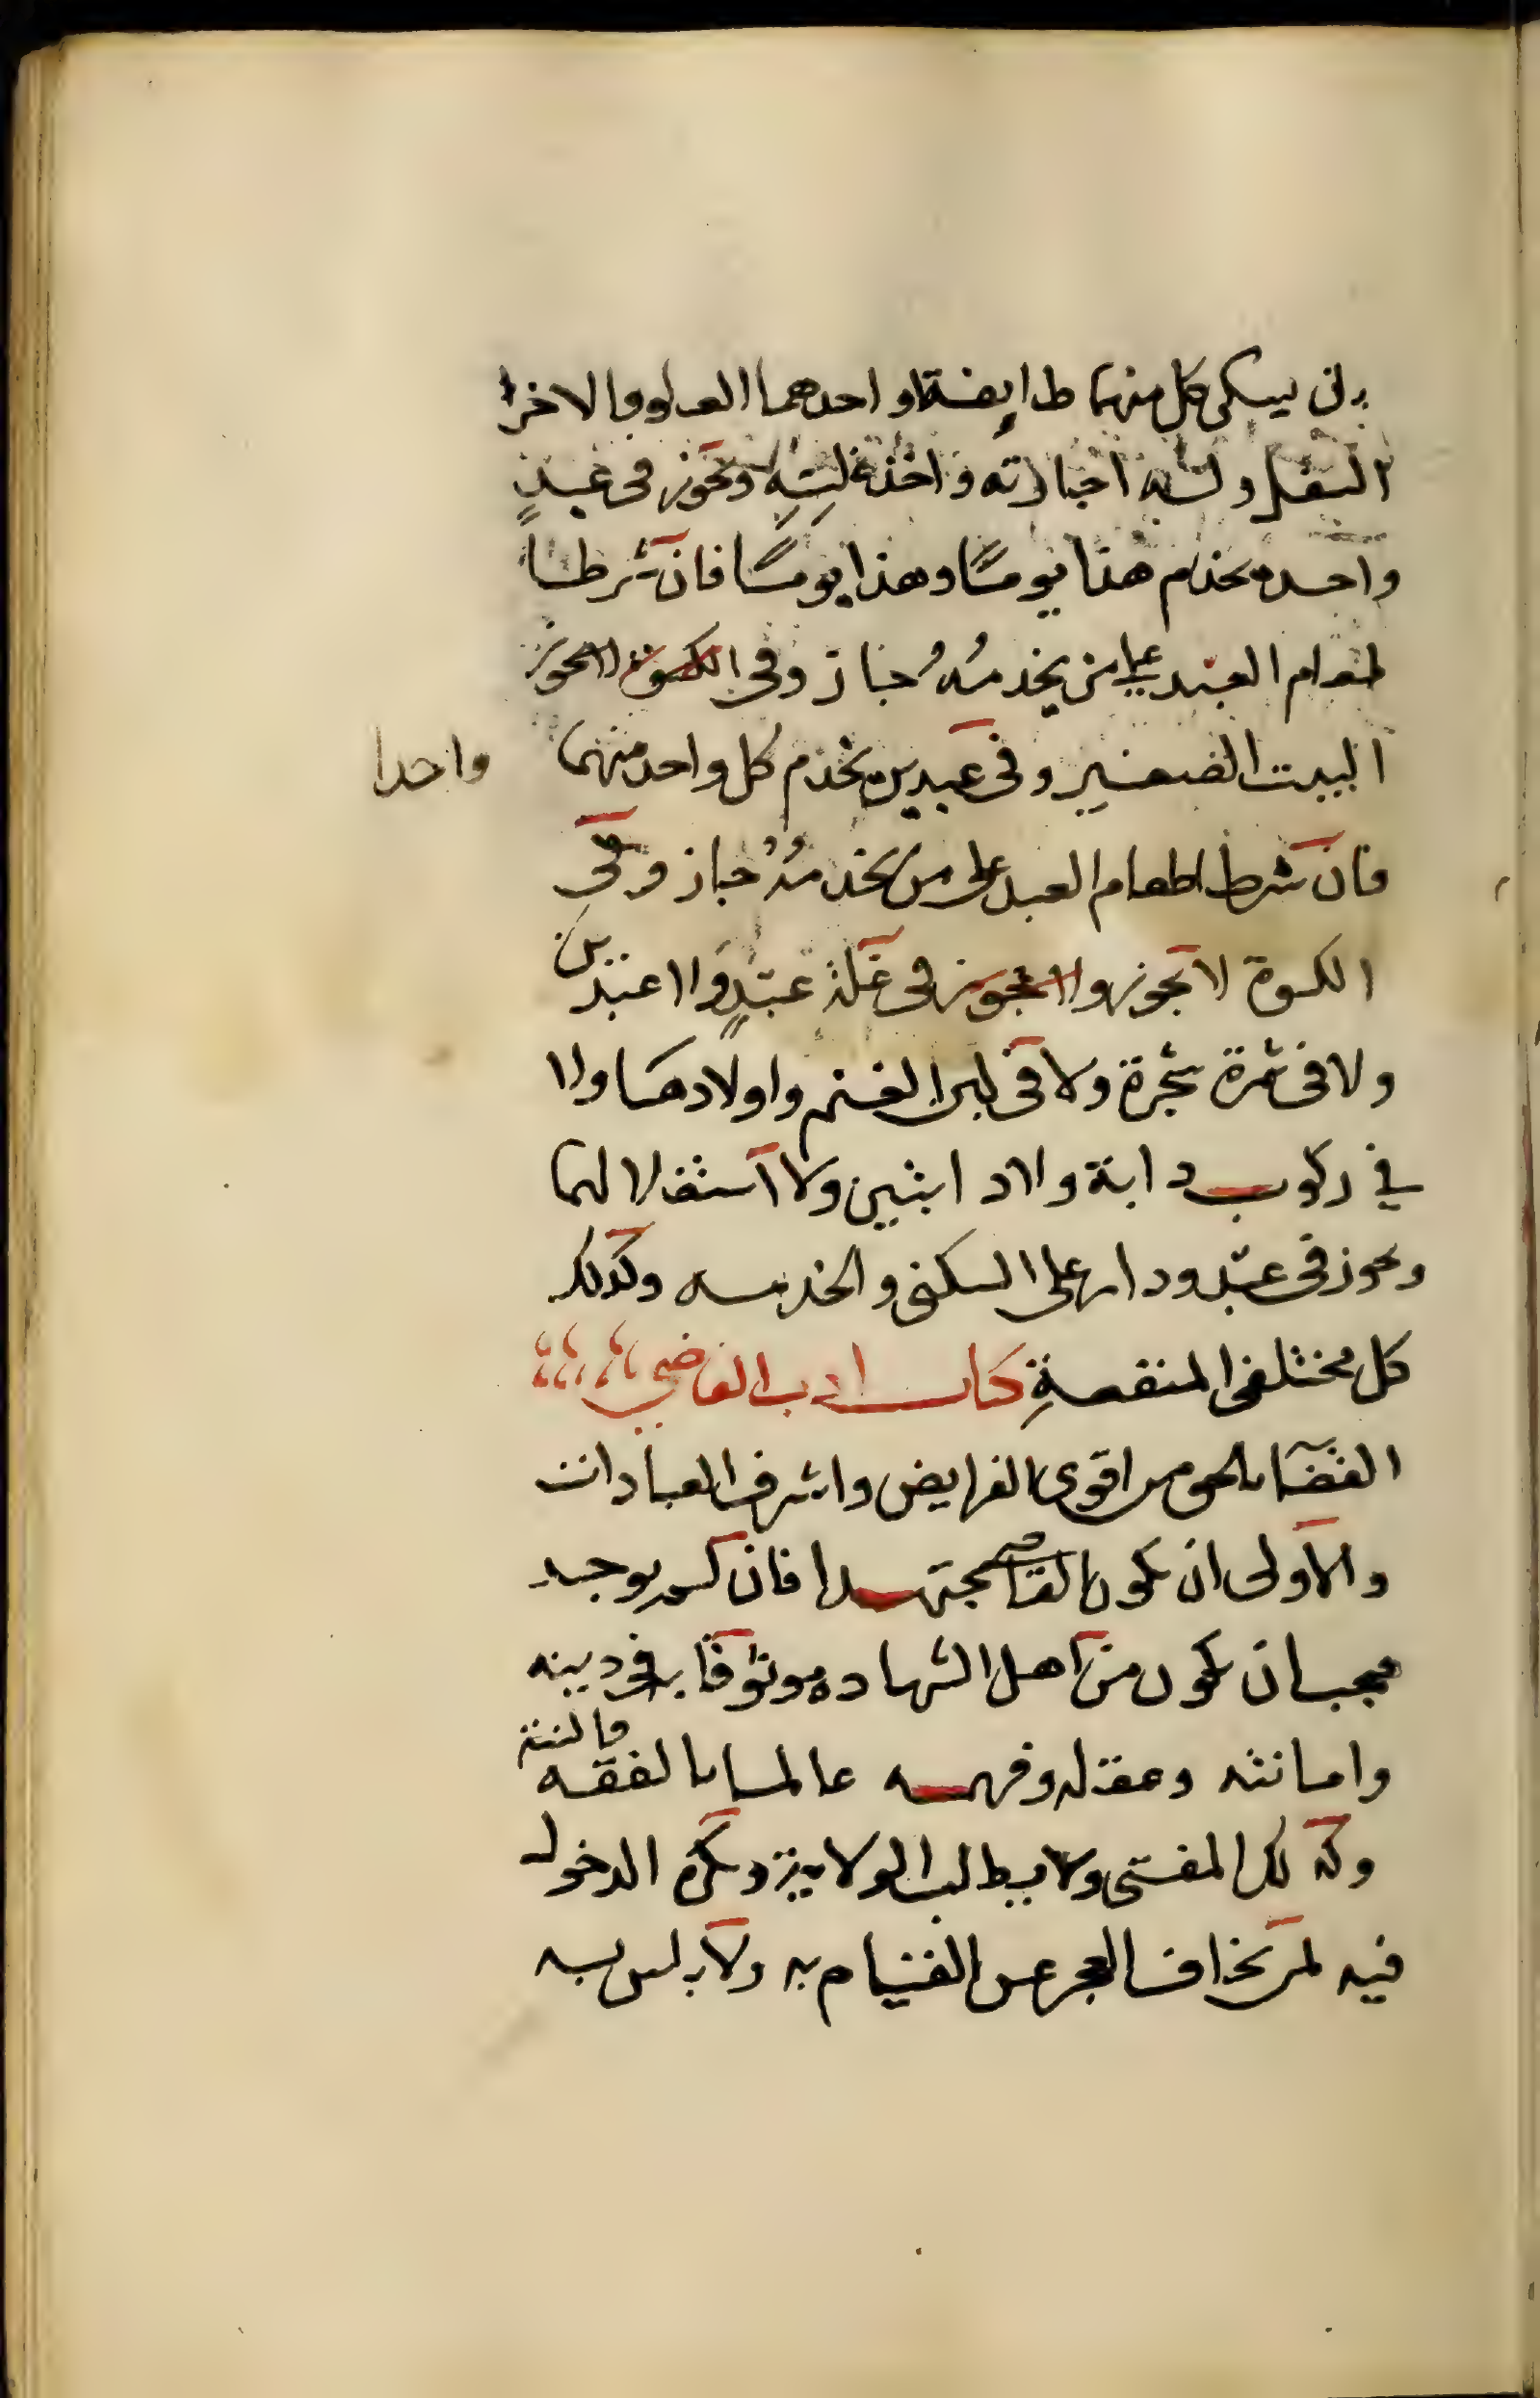 بان يسكن كل منهما طايفة او احدهما العلو والاخر
السفل وله اجارته واخذ غلته وتجوز في عبد
واحد يخدم هذا يوما وهذا يوما فان شرطا
طعام العبد على من يخدمه جاز وفي الكسوة لا يجوز
البيت الصغير وفي عبدين يخدم كل واحد منهما واحدا
فان شرطا طعام العبد على من يخدمه جاز وفي
الكسوة لا تجوز ولا تجوز في غلة عبد ولا عبدين
ولا في ثمرة شجرة ولا في لبن الغنم واولادها ولا
في ركوب دابة ولا دابتين ولا استغلالهما
ويجوز في عبد ودار على السكنى والخدمه وكذلك
كل مختلفي المنفعة كتاب ادب القاضي
القضا بالحق من اقوى الفرايض واشرف العبادات
والاولى ان يكون القاضي مجتهدا فان لم يوجد
فيجب ان يكون من اهل الشهاده موثوقا به في دينه
وامانته وعقله وفهمه عالما بالفقه والسنة
وكذلك المفتي ولا يطلب الولاية ويكره الدخول
فيه لمن يخاف العجز عن القيام به ولا باس به